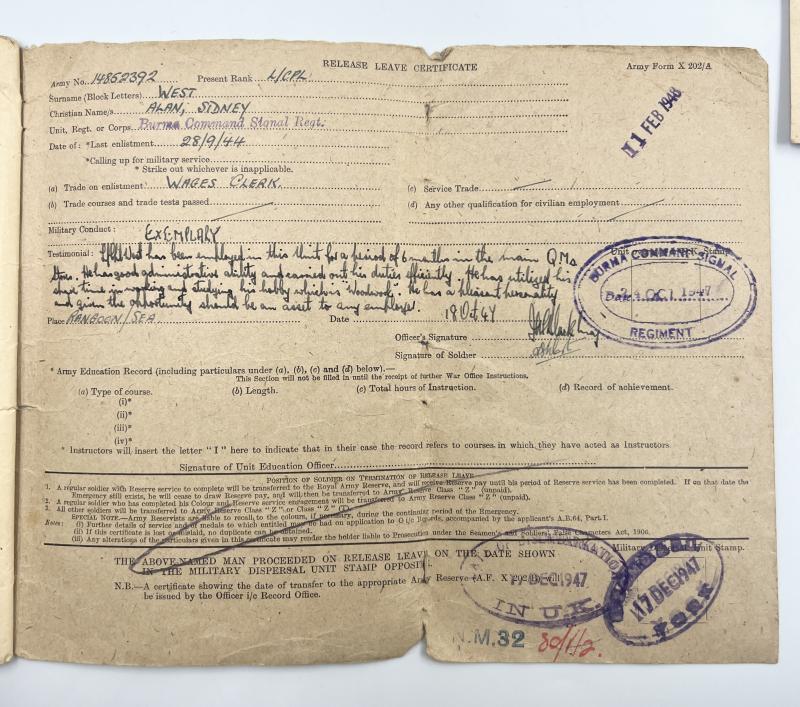 RELEASE LEAVE CERTIFICATE
Army Form X 202/A
Army No. 14852392 Present Rank L/CPL.
Surname (Block Letters) WEST
Christian Name/s ALAN, SIDNEY
Unit, Regt. or Corps Burma Command Signal Regt.
11 FEB 1948
Date of: *Last enlistment 28/9/44
*Calling up for military service
* Strike out whichever is inapplicable.
(a) Trade on enlistment WAGES CLERK. (c) Service Trade
(b) Trade courses and trade tests passed (d) Any other qualification for civilian employment
Military Conduct: EXEMPLARY
Unit Stamp
Testimonial: L/Cpl West has been employed in this Unit for a period of 6 months in the main Q.Ms
Store. He has good administrative ability and carried out his duties efficiently. He has utilized his
spare time in working and studying his hobby which is "Woodwork". He has a pleasant personality
and given the opportunity should be an asset to any employer.
BURMA COMMAND SIGNAL
24 OCT 1947
REGIMENT
Place RANGOON/SEA. Date 18 Oct 47
Officer's Signature
Signature of Soldier
* Army Education Record (including particulars under (a), (b), (c) and (d) below).—
This Section will not be filled in until the receipt of further War Office Instructions.
(a) Type of course. (b) Length. (c) Total hours of Instruction. (d) Record of achievement.
(i)*
(ii)*
(iii)*
(iv)*
* Instructors will insert the letter "I" here to indicate that in their case the record refers to courses in which they have acted as Instructors.
Signature of Unit Education Officer
POSITION OF SOLDIER ON TERMINATION OF RELEASE LEAVE
1. A regular soldier with Reserve service to complete will be transferred to the Royal Army Reserve, and will receive Reserve pay until his period of Reserve service has been completed. If on that date the
Emergency still exists, he will cease to draw Reserve pay, and will then be transferred to Army Reserve Class "Z" (unpaid).
2. A regular soldier who has completed his Colour and Reserve service engagement will be transferred to Army Reserve Class "Z" (unpaid).
3. All other soldiers will be transferred to Army Reserve Class "Z", or Class "Z" (T).
SPECIAL NOTE.—Army Reservists are liable to recall to the colours, if necessary, during the continued period of the Emergency.
Notes: (i) Further details of service and of medals to which entitled may be had on application to O i/c Records, accompanied by the applicant's A.B.64, Part I.
(ii) If this certificate is lost or mislaid, no duplicate can be obtained.
(iii) Any alterations of the particulars given in this certificate may render the holder liable to Prosecution under the Seamen's and Soldiers' False characters Act, 1906.
Military Dispersal Unit Stamp.
THE ABOVE-NAMED MAN PROCEEDED ON RELEASE LEAVE ON THE DATE SHOWN
IN THE MILITARY DISPERSAL UNIT STAMP OPPOSITE.
N.B.—A certificate showing the date of transfer to the appropriate Army Reserve (A.F. X 202B) will
be issued by the Officer i/c Record Office.
DISEMBARKATION
DEC 1947
IN U.K.
17 DEC 1947
YORK
N.M.32